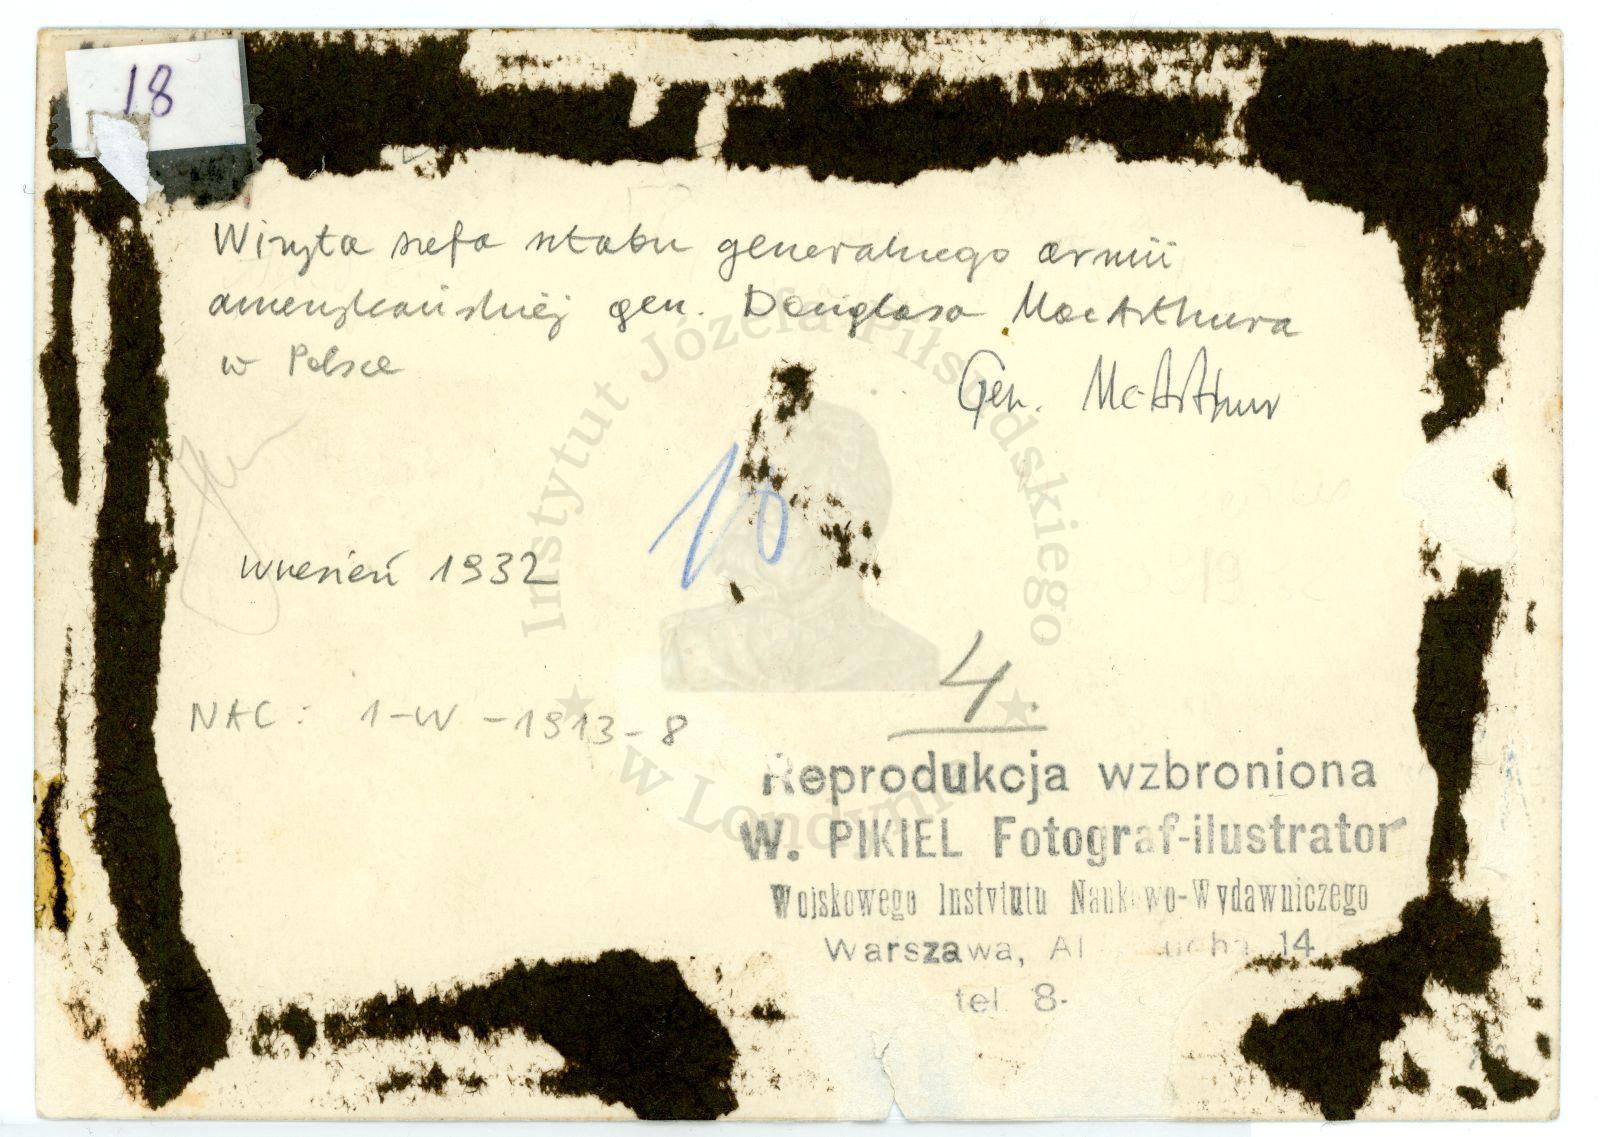 18
Wizyta szefa sztabu generalnego armii
amerykańskiej gen. Douglasa MacArthura
w Polsce
Gen. Mc Arthur
10
wrzesień 1932
4.
NAC: 1-W-1913-8
Reprodukcja wzbroniona
W. PIKIEL Fotograf-ilustrator
Wojskowego Instytutu Naukowo-Wydawniczego
Warszawa, Al 14
tel 8-
Instytut Józefa Piłsudskiego
w Londynie